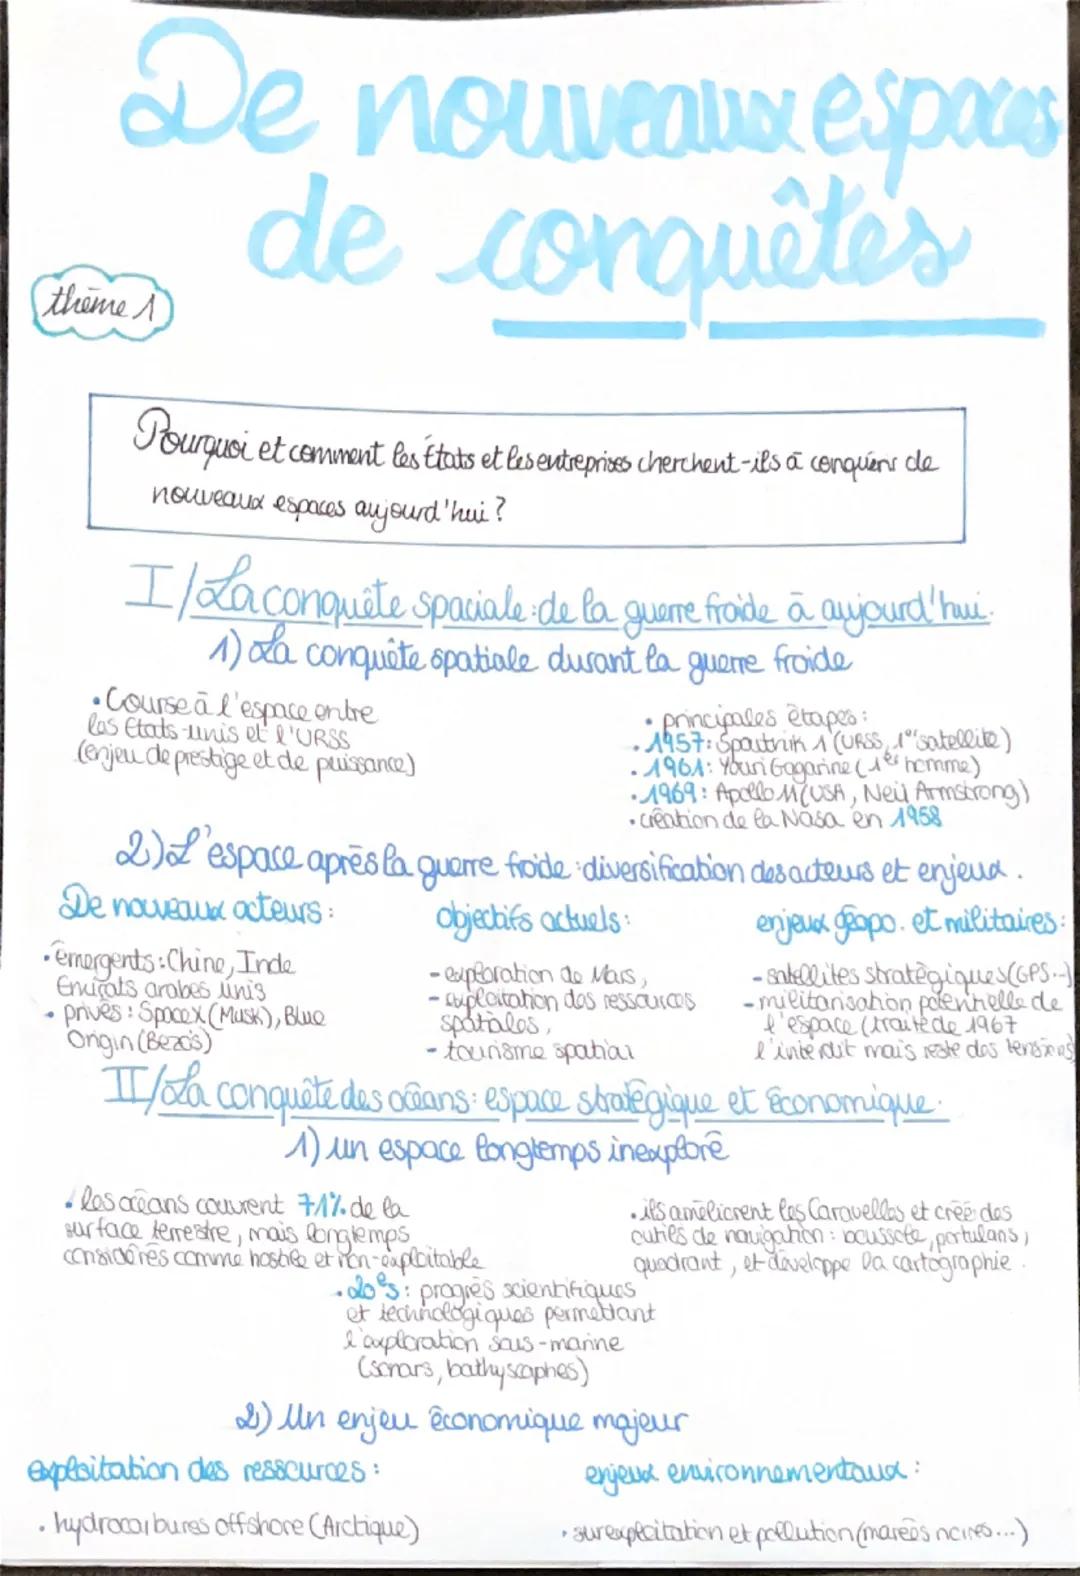 De nouveaux espaces
de conquêtes
thème 1
Pourquoi et comment les États et les entreprises cherchent-ils à conquérir de
nouveaux espaces aujourd'hui ?
I/ La conquête spaciale : de la guerre froide à aujourd'hui.
1) La conquête spatiale durant la guerre froide
• Course à l'espace entre
les Etats-unis et l'URSS
(enjeu de prestige et de puissance)
• principales étapes :
• 1957 : Spoutnik 1 (URSS, 1er satellite)
• 1961 : Youri Gagarine (1er homme)
• 1969 : Apollo 11 (USA, Neil Armstrong)
• création de la Nasa en 1958
2) L'espace après la guerre froide : diversification des acteurs et enjeux.
De nouveaux acteurs :
• émergents : Chine, Inde
Emirats arabes unis
• privés : SpaceX (Musk), Blue
Origin (Bezos)
objectifs actuels :
- exploration de Mars,
- exploitation des ressources
spatiales,
- tourisme spatial
enjeux géopo. et militaires :
- satellites stratégiques (GPS...)
- militarisation potentielle de
l'espace (traité de 1967
l'interdit mais reste des tensions)
II/ La conquête des océans : espace stratégique et économique.
1) un espace longtemps inexploré
• les océans couvrent 71% de la
surface terrestre, mais longtemps
considérés comme hostile et non-exploitable
• ils améliorent les Caravelles et créé des
outils de navigation : boussole, portulans,
quadrant, et développe la cartographie.
• 20es : progrès scientifiques
et technologiques permettant
l'exploration sous-marine
(sonars, bathyscaphes)
2) Un enjeu économique majeur
exploitation des ressources :
• hydrocarbures offshore (Arctique)
enjeux environnementaux :
• surexploitation et pollution (marées noires...)